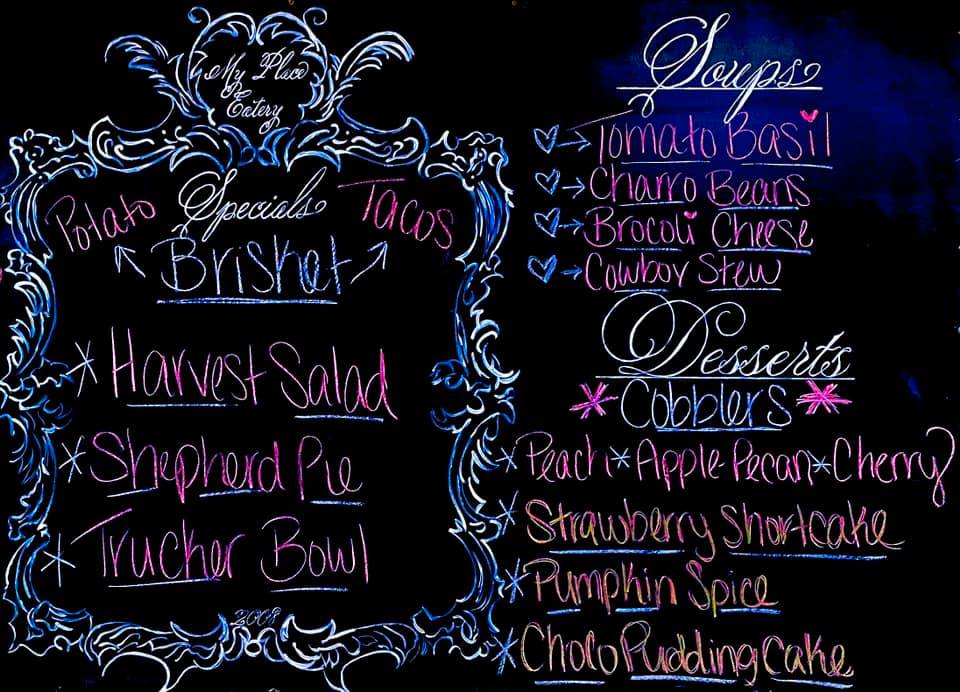 My Place
Eatery
Potato Specials Tacos
Brisket
Harvest Salad
Shepherd Pie
Trucker Bowl
2008
Soups
Tomato Basil
Charro Beans
Brocoli Cheese
Cowboy Stew
Desserts
Cobblers
Peach*Apple-Pecan*Cherry
Strawberry Shortcake
Pumpkin Spice
Choco Pudding Cake